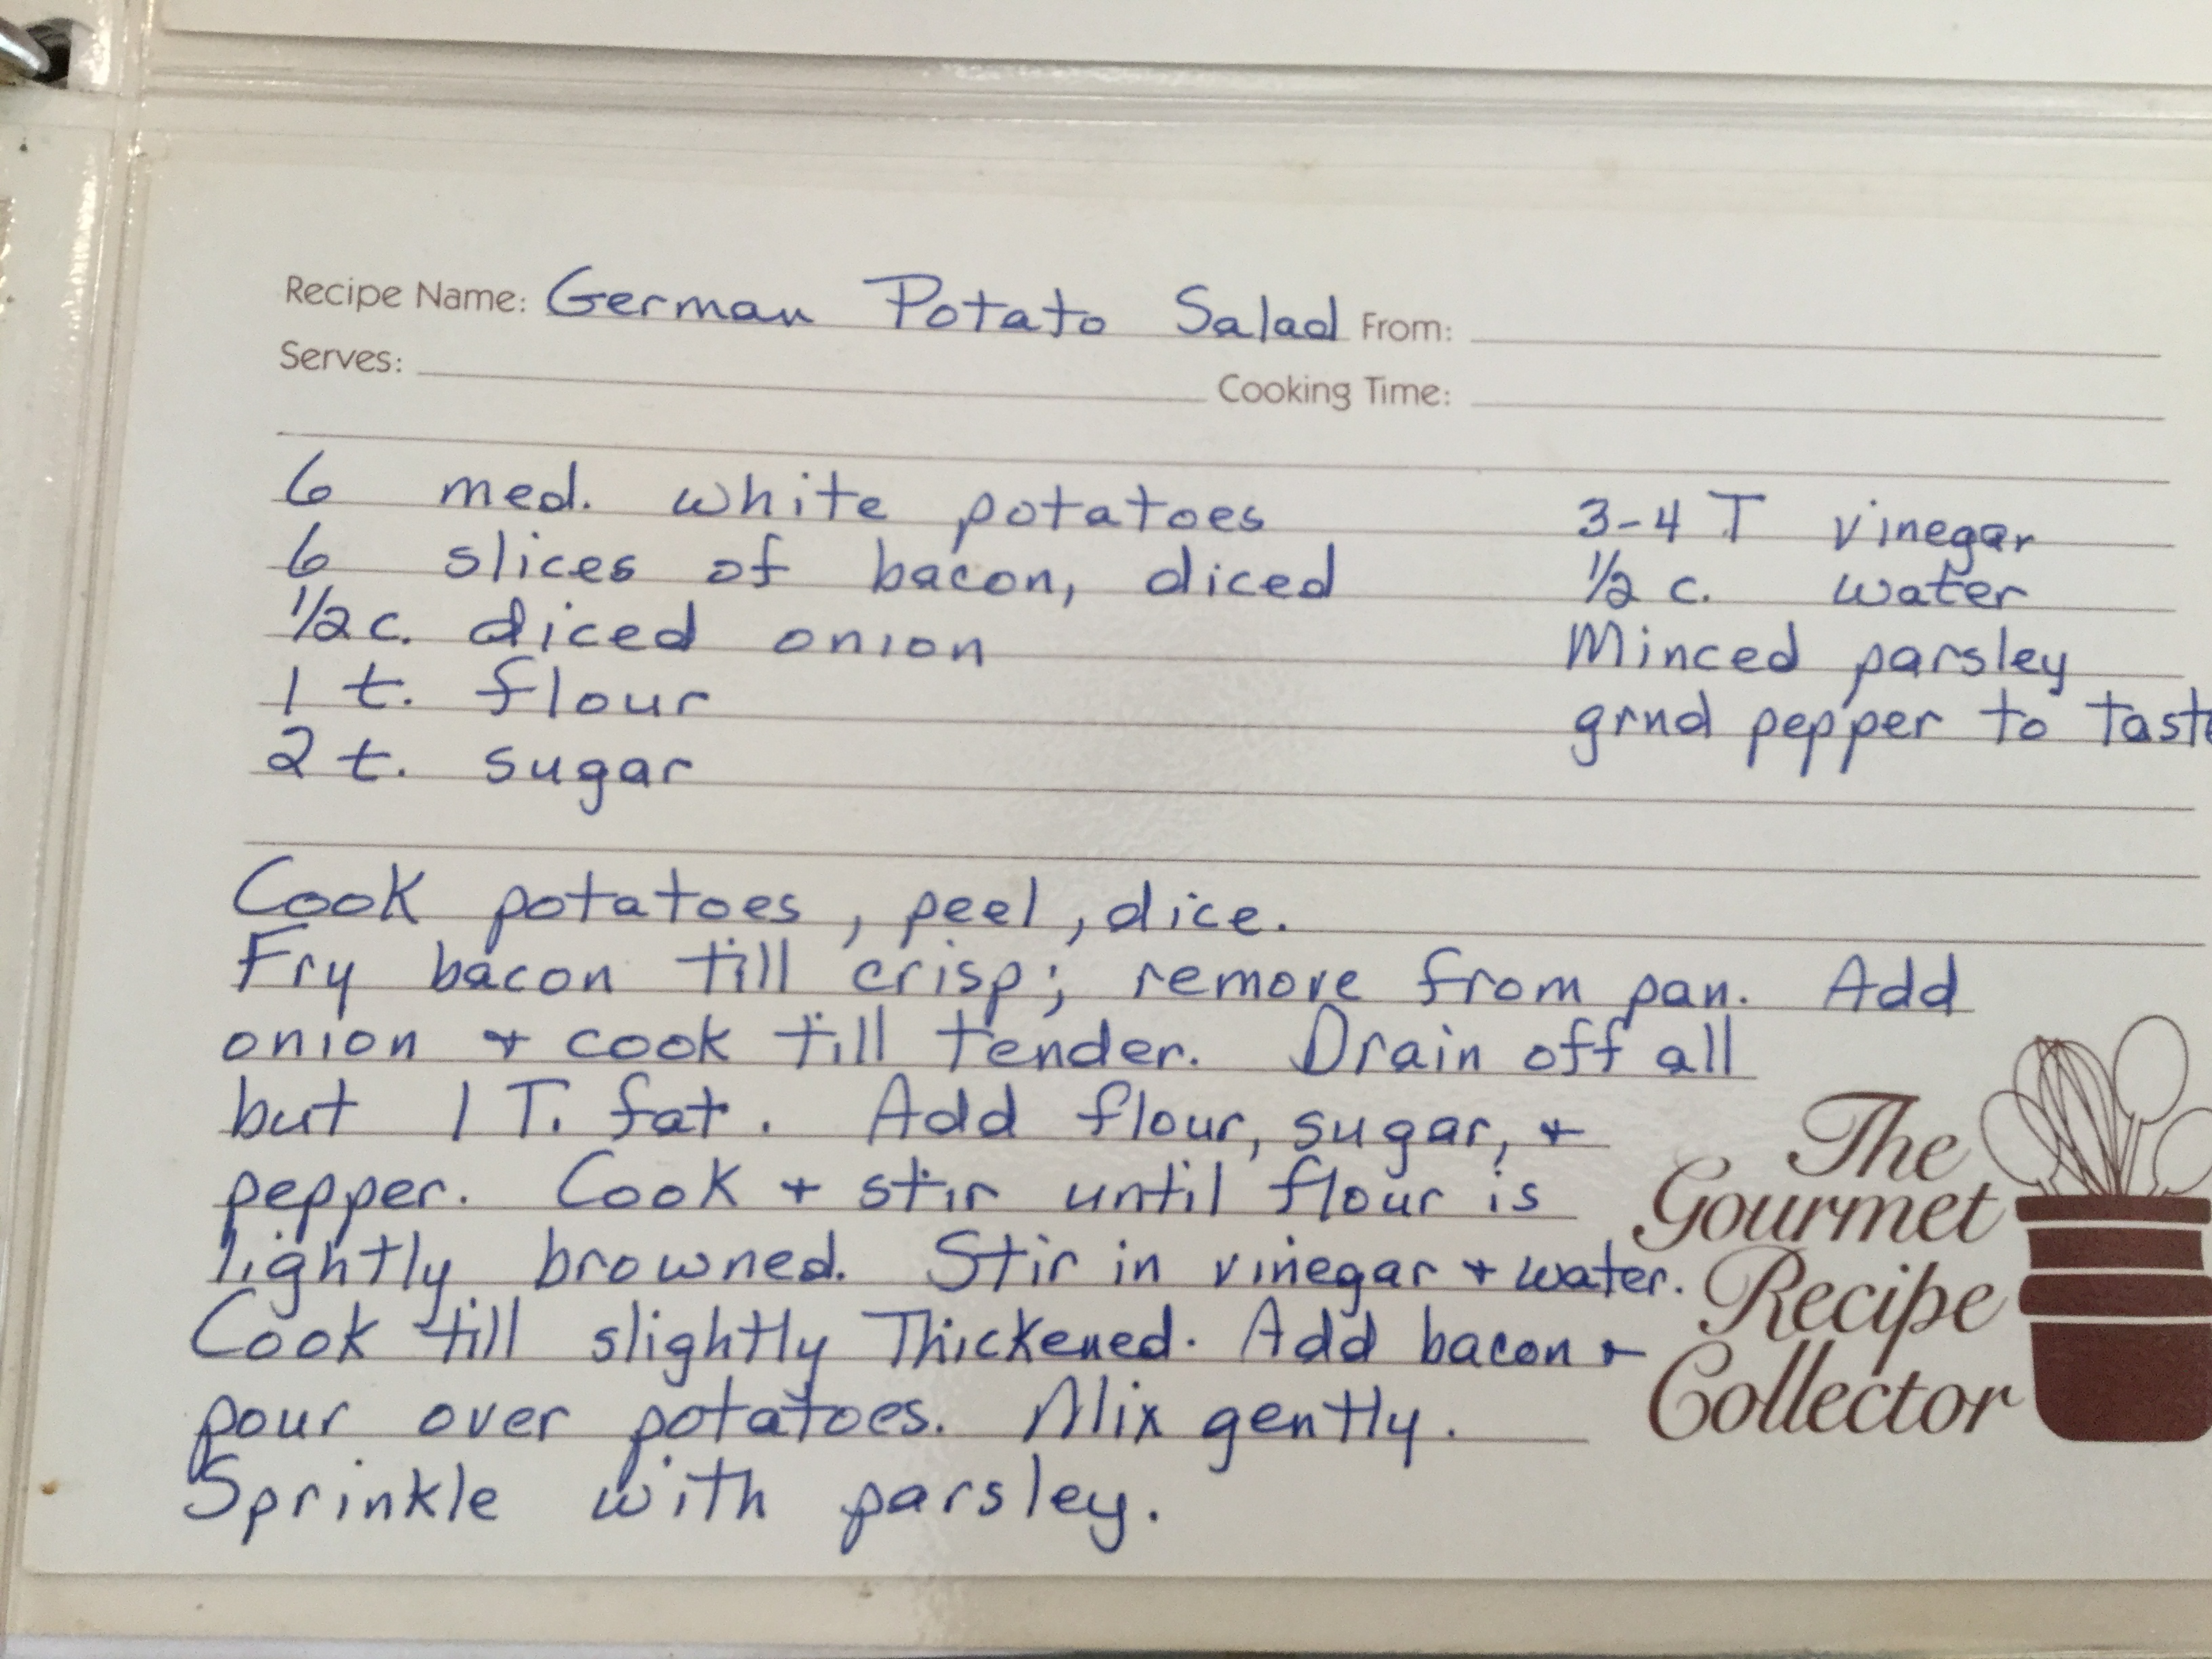 Recipe Name: German Potato Salad From:
Serves: Cooking Time:
6 med. white potatoes
6 slices of bacon, diced
1/2 c. diced onion
1 t. flour
2 t. sugar
3-4 T vinegar
1/2 c. water
Minced parsley
grnd pepper to taste
Cook potatoes, peel, dice.
Fry bacon till crisp; remove from pan. Add
onion + cook till tender. Drain off all
but 1 T. fat. Add flour, sugar, +
pepper. Cook + stir until flour is
lightly browned. Stir in vinegar + water.
Cook till slightly Thickened. Add bacon +
pour over potatoes. Mix gently.
Sprinkle with parsley.
The
Gourmet
Recipe
Collector